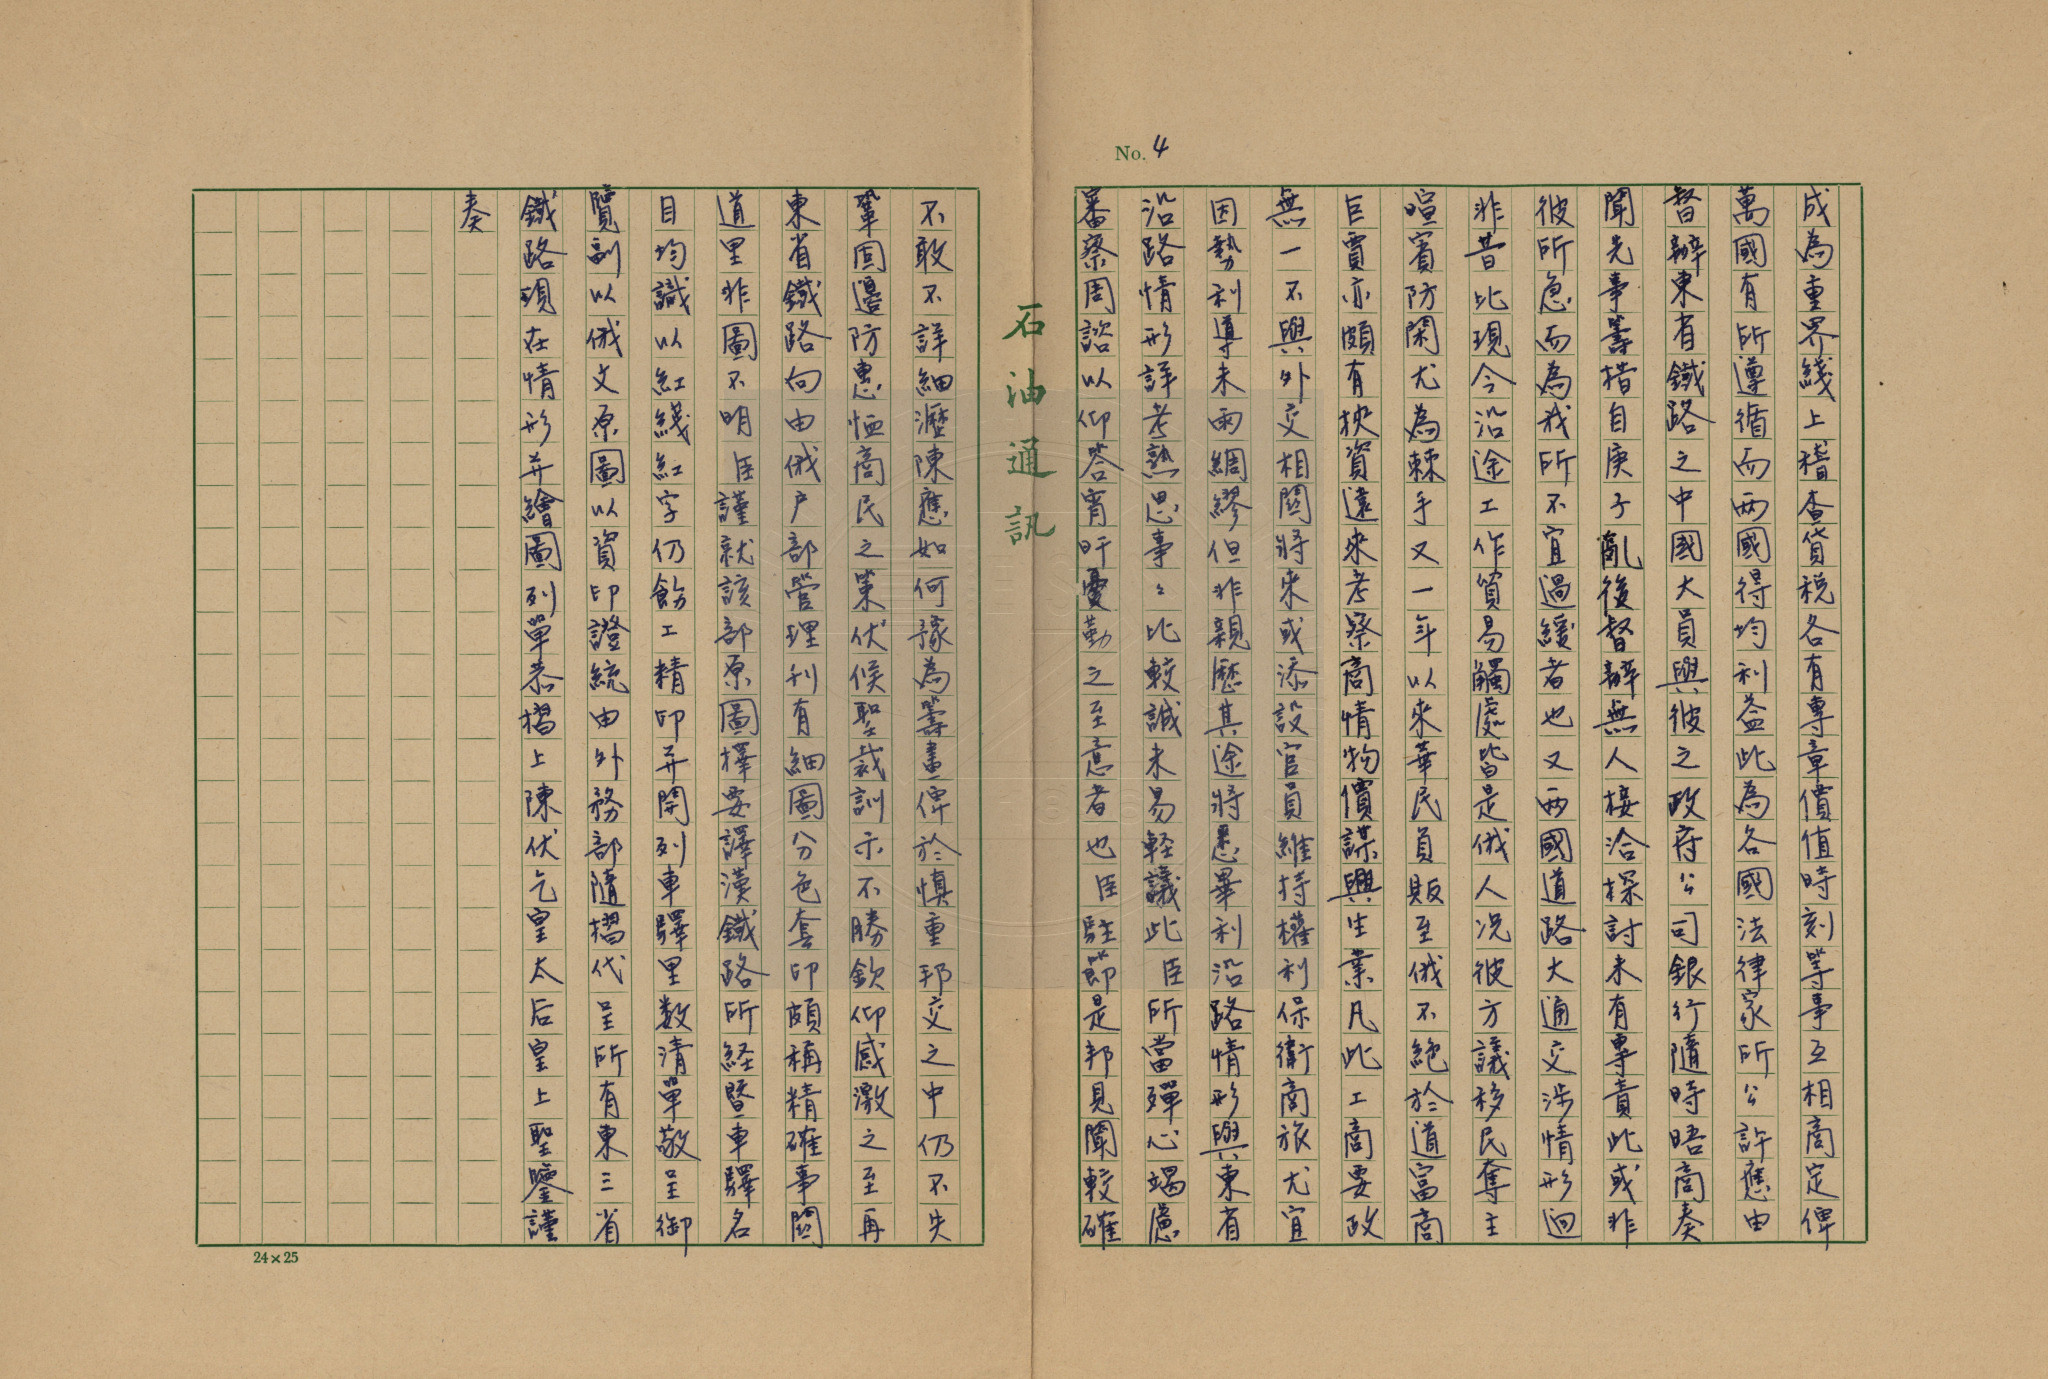 No. 4
成為重界綫上稽查貨税各有專章價值時刻等事互相商定俾
萬國有所遵循而兩國得均利益此為各國法律家所公許應由
督辦東省鐵路之中國大員與彼之政府公司銀行隨時晤商奏
聞先事籌措自庚子亂後督辦無人接洽探討未有專責此或非
彼所急而為我所不宜過緩者也又兩國道路大通交涉情形迥
非昔比現今沿途工作貿易觸處皆是俄人況彼方議移民奪主
喧賓防閑尤為棘手又一年以來華民負販至俄不絕於道富商
巨賈亦頗有挾資遠來考察商情物價謀與生業凡此工商要政
無一不與外交相關將來或添設官員維持權利保衛商旅尤宜
因勢利導未雨綢繆但非親歷其途將悉畢利沿路情形與東省
沿路情形詳考熟思事〻比較誠未易軽議此臣所當殫心竭慮
審察周諮以仰答宵旰憂勤之至意者也臣駐節是邦見聞較確
石油通訊
不敢不詳細瀝陳應如何豫為籌畫俾於慎重邦交之中仍不失
鞏固邊防惠恤商民之策伏候聖裁訓示不勝欽仰感激之至再
東省鐵路向由俄户部管理刋有細圖分色套印頗稱精確事關
道里非圖不明臣謹就該部原圖擇要譯漢鐵路所経暨車驛名
目均識以紅綫紅字仍飭工精印并開列車驛里数清單敬呈御
覽副以俄文原圖以資印證統由外務部隨摺代呈所有東三省
鐵路現在情形并繪圖列單恭摺上陳伏乞皇太后皇上聖鑒謹
奏
24×25